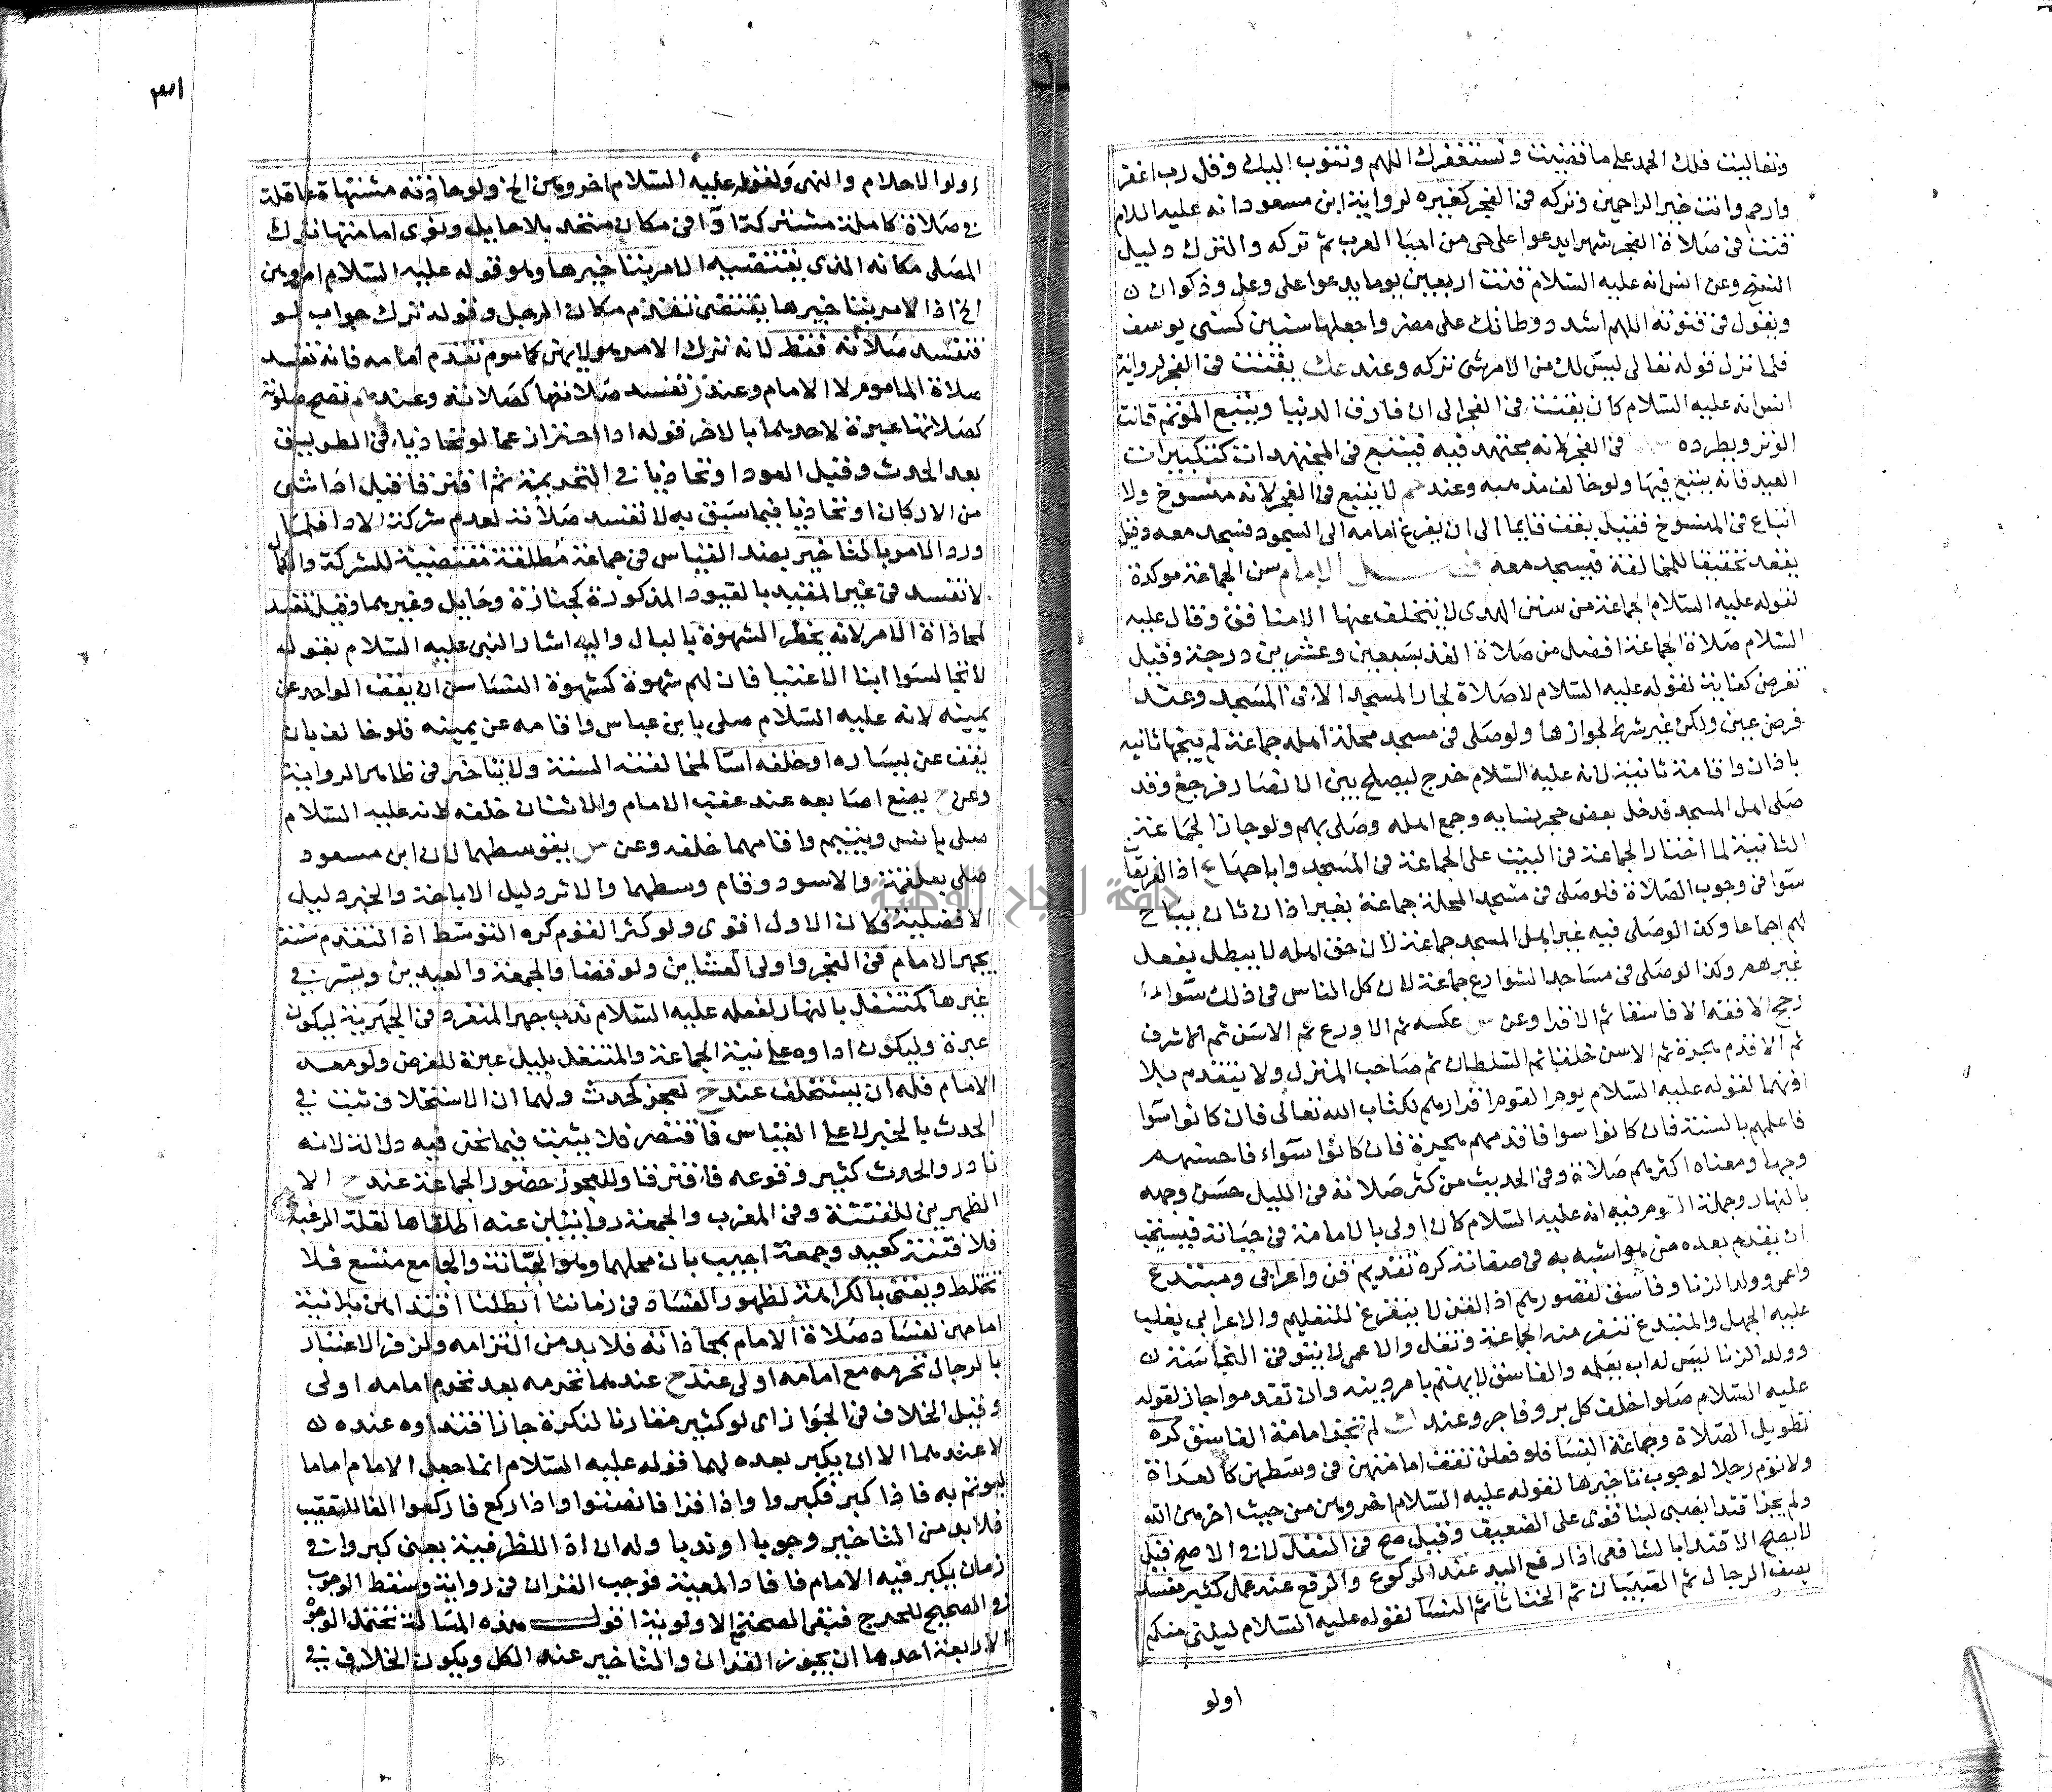 وتعاليت فلك الحمد على ما قضيت ونستغفرك اللهم ونتوب اليك وقل رب اغفر
وارحم وانت خير الراحمين وتركه في الفجر كغيره لرواية ابن مسعود انه عليه السلام
قنت في صلاة الفجر شهرا يدعوا على حي من احيا العرب ثم تركه والترك دليل
النسخ وعن انس انه عليه السلام قنت اربعين يوما يدعوا على وعل وذكوان
ويقول في قنوته اللهم اشدد وطاتك على مضر واجعلها سنين كسني يوسف
فلما نزل قوله تعالى ليس لك من الامر شي تركه وعند يقنت في الفجر لرواية
انس انه عليه السلام كان يقنت في الفجر الى ان فارق الدنيا ويتبع المؤتم قانت
الوتر ويطرده في الفجر لانه مجتهد فيه فيتبع في المجتهدات كتكبيرات
العيد فانه يتبع فيها ولو خالف مذهبه وعند لا يتبع في الفجر لانه منسوخ ولا
اتباع في المنسوخ فقيل يقف قايما الى ان يفرغ امامه الى السجود فسجد معه وقيل
يقعد تحقيقا للمخالفة فيسجد معه فصل الامام سن الجماعة موكدة
لقوله عليه السلام الجماعة من سنن الهدى لا يتخلف عنها الا منافق وقال عليه
السلام صلاة الجماعة افضل من صلاة الفذ بسبعين وعشرين درجة وقيل
تفرض كفاية لقوله عليه السلام لا صلاة لجار المسجد الا في المسجد وعند
فرض عين ولكن غير شرط لجوازها ولو صلى في مسجد محلة اهله جماعة لم يبحها ثانيه
باذان واقامة ثانية لانه عليه السلام خرج ليصلح بين الانصار فرجع وقد
صلى اهل المسجد فدخل بعض حجر نسايه وجمع اهله وصلى بهم ولو جاز الجماعة
الثانية لما اختار الجماعة في البيت على الجماعة في المسجد واباحها اذ الفريقان
سوا في وجوب الصلاة فلو صلى في مسجد المحلة جماعة بغير اذان ثان يباح
لهم اجماعا وكذا لو صلى فيه غير اهل المسجد جماعة لان حق اهله لا يبطل بفعل
غيرهم وكذا لو صلى في مساجد الشوارع جماعة لان كل الناس في ذلك سواء
رجح الافقه الا فاسقا ثم الاقرا وعن س عكسه ثم الاورع ثم الاسن ثم الاشرف
ثم الاقدم هجرة ثم الاسن خلقا ثم السلطان ثم صاحب المنزل ولا يتقدم بلا
اذنهما لقوله عليه السلام يوم القوم اقراهم لكتاب الله تعالى فان كانوا سوا
فاعلمهم بالسنة فان كانوا سوا فاقدمهم هجرة فان كانوا سواء فاحسنهم
وجها ومعناه اكثرهم صلاة وفي الحديث من كثر صلاته في الليل حسن وجهه
بالنهار وجملة فيه انه عليه السلام كان اولى بالامامة في حياته فيستحب
ان يقدم بعده من هو اشبه به في صفاته كره تقديم قن واعرابي ومبتدع
واعمى وولد الزنا وفاسق لقصورهم اذ القن لا يتفرغ للتعليم والاعرابي يغلب
عليه الجهل والمبتدع تنفر منه الجماعة وتقل والاعمى لا يتوقى النجاسة
وولد الزنا ليس له اب يعلمه والفاسق لا يهتم بامر دينه وان تقدموا جاز لقوله
عليه السلام صلوا خلف كل بر وفاجر وعند لم تجز امامة الفاسق كره
تطويل الصلاة وجماعة النسا فلو فعلن تقف امامتهن في وسطهن كالعراة
ولا تؤم رجلا لوجوب تاخيرها لقوله عليه السلام اخروهن من حيث اخرهن الله
ولم يجز اقتدا بصبي لبنا قوى على الضعيف وقيل صح في النفل لا في الاصح قيل
لا يصح الاقتدا بالشافعي اذا رفع اليد عند الركوع والرفع عنه عمل كثير مفسد
يصف الرجال ثم الصبيان ثم الخناثا ثم النسا لقوله عليه السلام ليلني منكم
اولو
اولوا الاحلام والنهى ولقوله عليه السلام اخروهن الخ ولو حاذته مشتهاة عاقلة
في صلاة كاملة مشتركة ادا في مكان متحد بلا حايل ونوى امامتها ترك
المصلى مكانه الذي يقتضيه الامر بتاخيرها وهو قوله عليه السلام اخروهن
الخ اذ الامر بتاخيرها يقتضي تقدم مكان الرجل وقوله ترك جواب لو
فتفسد صلاته فقط لانه ترك الامر هو لا هي كماموم تقدم امامه فانه تفسد
صلاة الماموم لا الامام وعند ز تفسد صلاتها كصلاته وعند تصح صلوته
كصلاتها عبرة لاحدهما بالاخر قوله ادا احتراز عما لو تحاذيا في الطريق
بعد الحدث وقبل العود او تحاذيا في التحريمة ثم افترقا قبل اداشي
من الاركان او تحاذيا فيما سبق به لا تفسد صلاته لعدم شركة الادا فلما كان
ورد الامر بالتاخير بضد القياس في جماعة مطلقة مقتضية للشركة والكمال
لا تفسد في غير المقيد بالقيود المذكورة كجنازة وحايل وغيرهما وقيل تفسد
لمحاذاة الامر لانه يخطر الشهوة بالبال واليه اشار النبي عليه السلام بقوله
لا تجالسوا ابنا الاغنيا فان لهم شهوة كشهوة النسا سن ان يقف الواحد عن
يمينه لانه عليه السلام صلى بابن عباس واقامه عن يمينه فلو خالف بان
يقف عن يساره او خلفه اسا لمخالفته السنة ولا يتاخر في ظاهر الرواية
وعن ح يضع اصابعه عند عقب الامام والاثنان خلفه لانه عليه السلام
صلى بانس ويتيم واقامهما خلفه وعن س يتوسطهما لان ابن مسعود
صلى بعلقمة والاسود وقام وسطهما والاثر دليل الاباحة والخبر دليل
الافضلية فكان الاول اقوى ولو كثر القوم كره التوسط اذ التقدم سنة
يجهر الامام في الفجر واولى العشاين ولو قضا والجمعة والعيدين ويسر في
غيرها كمتنفل بالنهار لفعله عليه السلام ندب جهر المنفرد في الجهرية ليكون
عبرة وليكون اداوه على نية الجماعة والمتنفل بليل عبرة للفرض ولو معه
الامام فله ان يستخلف عند ح لعجز كحدث ولهما ان الاستخلاف ثبت في
الحدث بالخبر لا على القياس فاقتصر فلا يثبت فيما نحن فيه دلالة لانه
نادر والحدث كثير وقوعه فافترقا وللعجوز حضور الجماعة عند ح الا
الظهرين للفتنة وفي المغرب والجمعة روايتين عنه اطلقاها لقلة الرغبة
فلا فتنة كعيد وجمعة اجيب بان محلهما وهو الجبانة والجامع متسع فلا
تختلط ويفتى بالكراهة لظهور الفساد في زماننا ابطلنا اقتداهن بلا نية
امامهن لفساد صلاة الامام بمحاذاته فلا بد من التزامه ولزفر الاعتبار
بالرجال تحرمه مع امامه اولى عند ح عندهما تحرمه بعد تحرم امامه اولى
وقيل الخلاف في الجواز اى لو كبر مقارنا لتكبره جاز اقتداوه عنده
لا عندهما الا ان يكبر بعده لهما قوله عليه السلام انما جعل الامام اماما
ليوتم به فاذا كبر فكبروا واذا قرا فانصتوا واذا ركع فاركعوا الفا للتعقيب
فلا بد من التاخير وجوبا او ندبا وله ان اذ اللظرفية يعني كبروا في
زمان يكبر فيه الامام فافاد المعية فوجب القران في رواية وسقط الوجوب
في الصحيح للحرج فتبقى الصحة الاولوية اقول هذه المسالة تحتمل الوجوه
الاربعة احدها ان يجوز القران والتاخير عند الكل ويكون الخلاف في
جامعة النجاح الوطنية